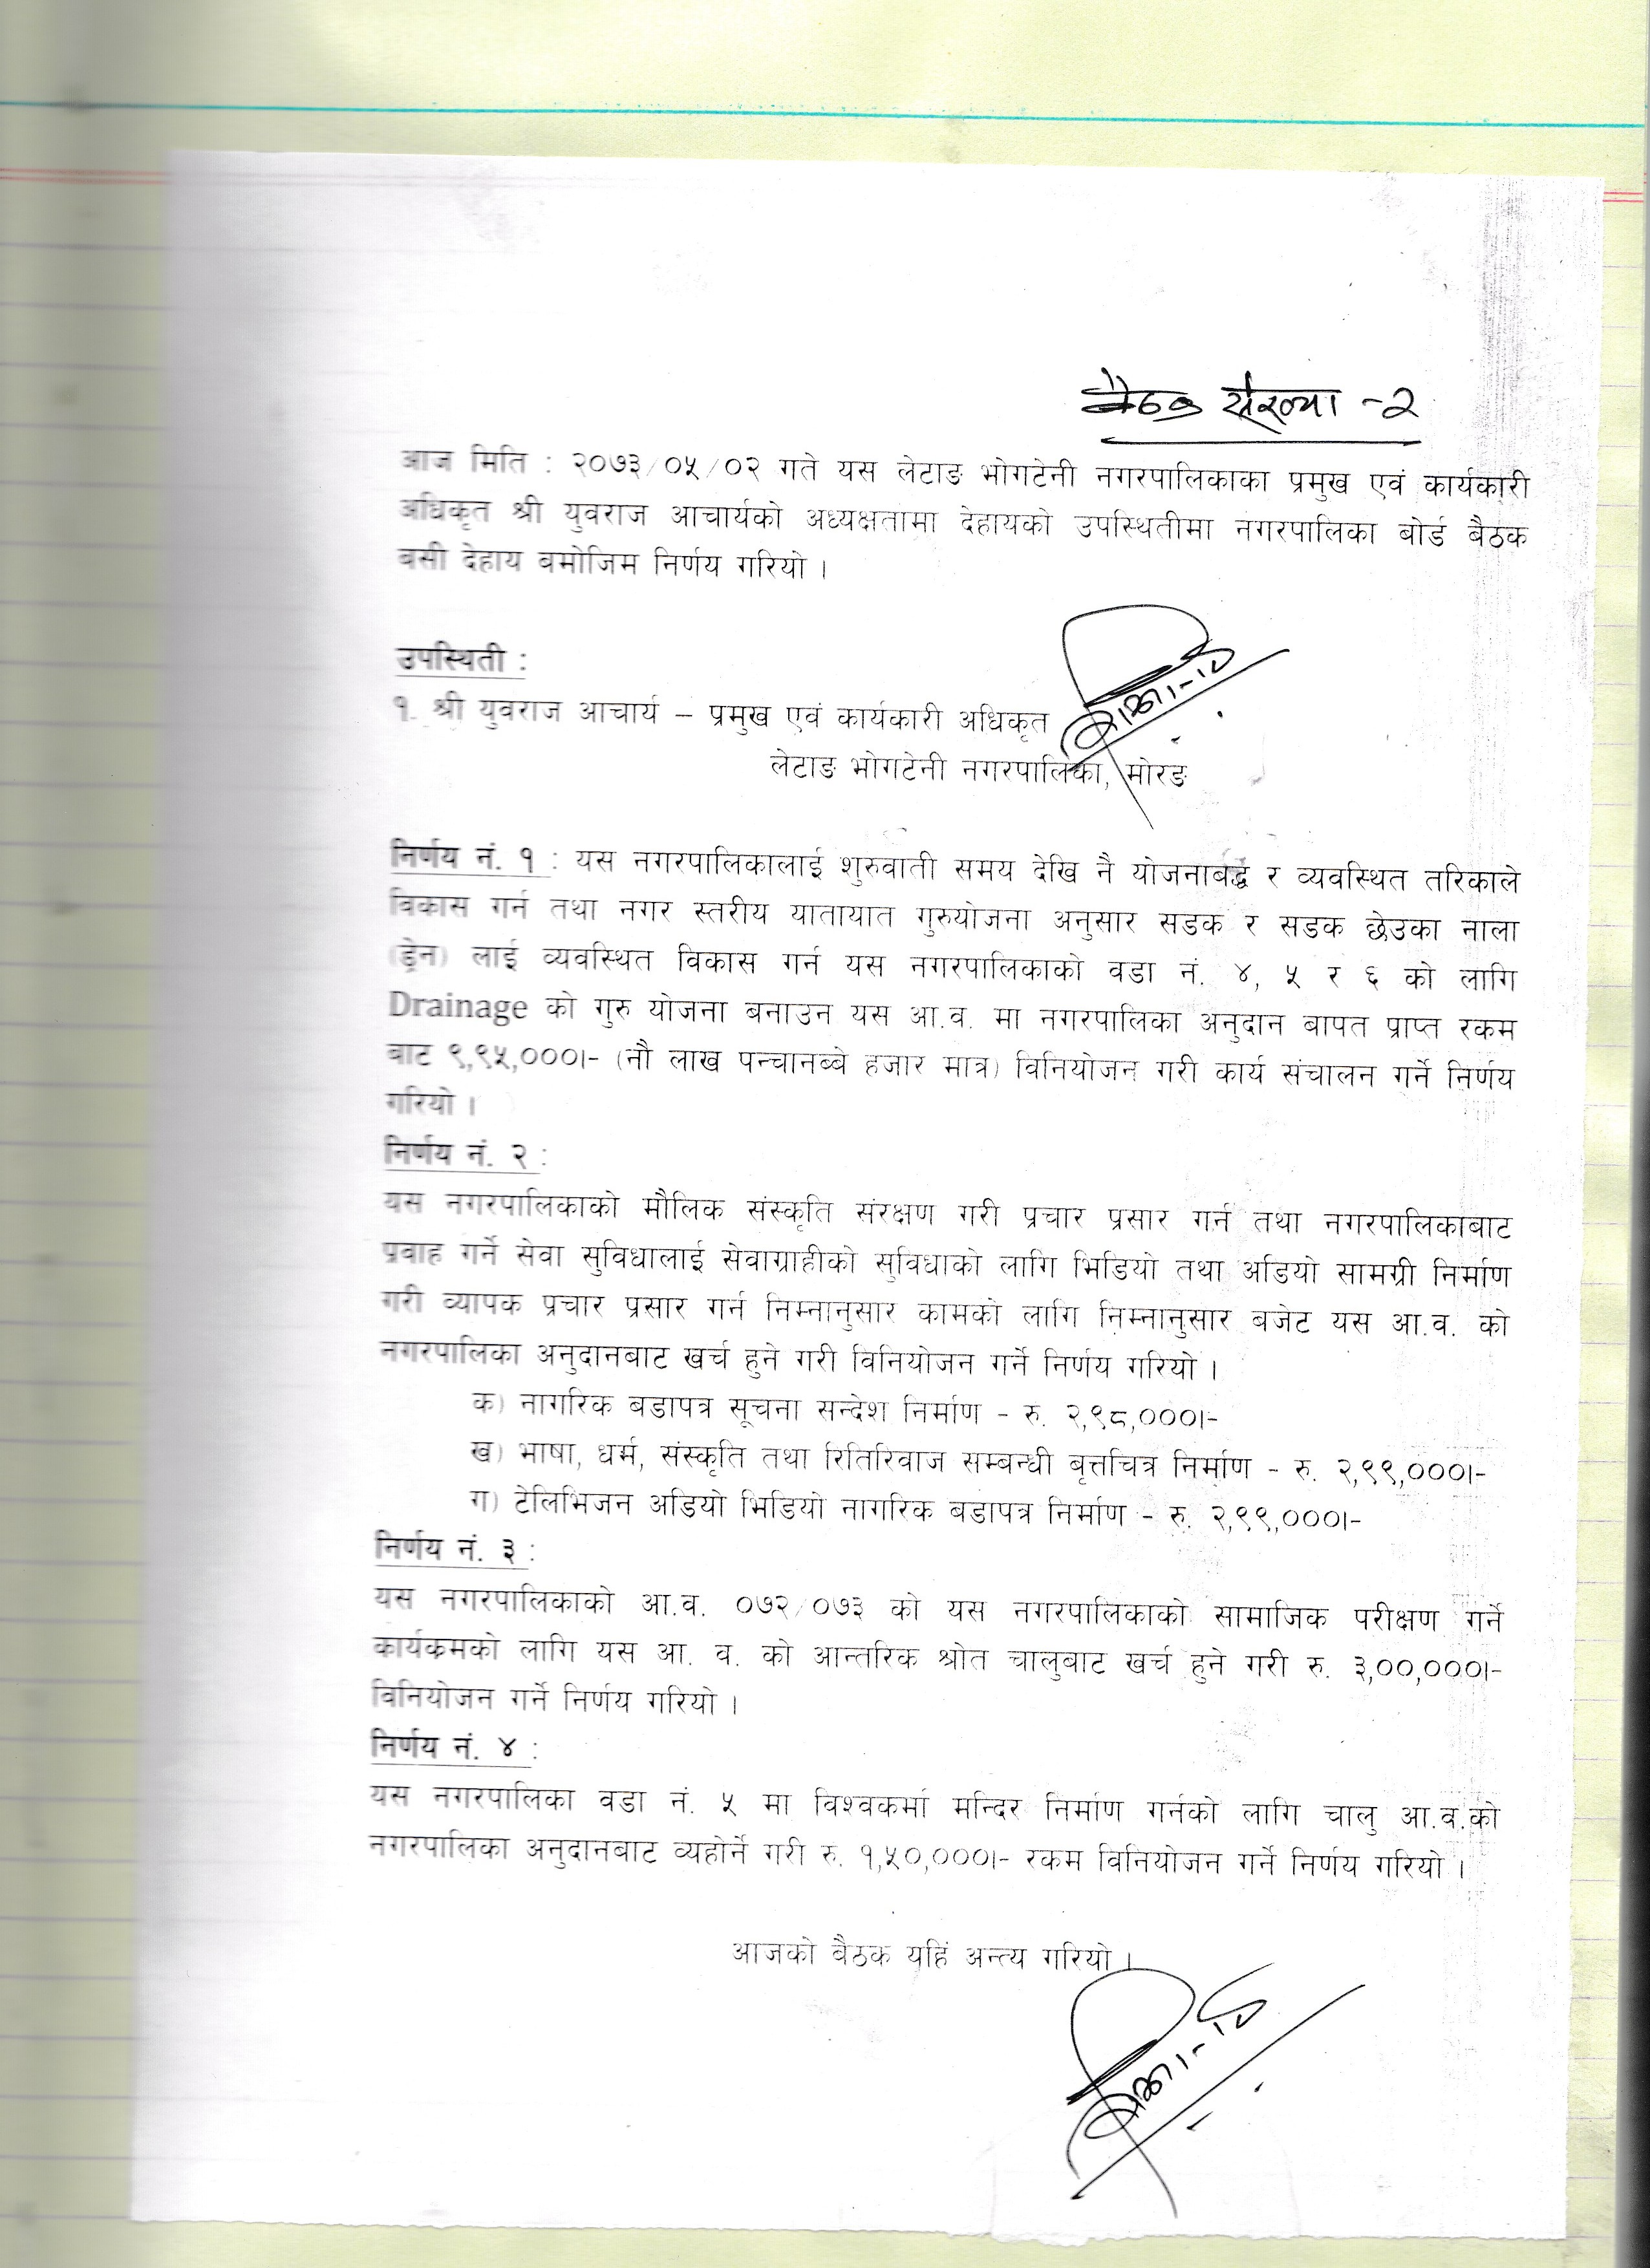 बैठक संख्या -२
आज मिति : २०७३/०५/०२ गते यस लेटाङ भोगटेनी नगरपालिकाका प्रमुख एवं कार्यकारी
अधिकृत श्री युवराज आचार्यको अध्यक्षतामा देहायको उपस्थितीमा नगरपालिका बोर्ड बैठक
बसी देहाय बमोजिम निर्णय गरियो ।
उपस्थिती :
१. श्री युवराज आचार्य – प्रमुख एवं कार्यकारी अधिकृत
लेटाङ भोगटेनी नगरपालिका, मोरङ
निर्णय नं. १ : यस नगरपालिकालाई शुरुवाती समय देखि नै योजनाबर्द्ध र व्यवस्थित तरिकाले
विकास गर्न तथा नगर स्तरीय यातायात गुरुयोजना अनुसार सडक र सडक छेउका नाला
(ड्रेन) लाई व्यवस्थित विकास गर्न यस नगरपालिकाको वडा नं. ४, ५ र ६ को लागि
Drainage को गुरु योजना बनाउन यस आ.व. मा नगरपालिका अनुदान बापत प्राप्त रकम
बाट ९,९५,०००।- (नौ लाख पन्चानब्बे हजार मात्र) विनियोजन गरी कार्य संचालन गर्ने निर्णय
गरियो ।
निर्णय नं. २ :
यस नगरपालिकाको मौलिक संस्कृति संरक्षण गरी प्रचार प्रसार गर्न तथा नगरपालिकाबाट
प्रवाह गर्ने सेवा सुविधालाई सेवाग्राहीको सुविधाको लागि भिडियो तथा अडियो सामग्री निर्माण
गरी व्यापक प्रचार प्रसार गर्न निम्नानुसार कामको लागि निम्नानुसार बजेट यस आ.व. को
नगरपालिका अनुदानबाट खर्च हुने गरी विनियोजन गर्ने निर्णय गरियो ।
क) नागरिक बडापत्र सूचना सन्देश निर्माण - रु. २,९८,०००।-
ख) भाषा, धर्म, संस्कृति तथा रितिरिवाज सम्बन्धी बृत्तचित्र निर्माण - रु. २,९९,०००।-
ग) टेलिभिजन अडियो भिडियो नागरिक बडापत्र निर्माण - रु. २,९९,०००।-
निर्णय नं. ३ :
यस नगरपालिकाको आ.व. ०७२/०७३ को यस नगरपालिकाको सामाजिक परीक्षण गर्ने
कार्यक्रमको लागि यस आ. व. को आन्तरिक श्रोत चालुबाट खर्च हुने गरी रु. ३,००,०००।-
विनियोजन गर्ने निर्णय गरियो ।
निर्णय नं. ४ :
यस नगरपालिका वडा नं. ५ मा विश्वकर्मा मन्दिर निर्माण गर्नको लागि चालु आ.व.को
नगरपालिका अनुदानबाट व्यहोर्ने गरी रु. १,५०,०००।- रकम विनियोजन गर्ने निर्णय गरियो ।
आजको बैठक यहिं अन्त्य गरियो ।